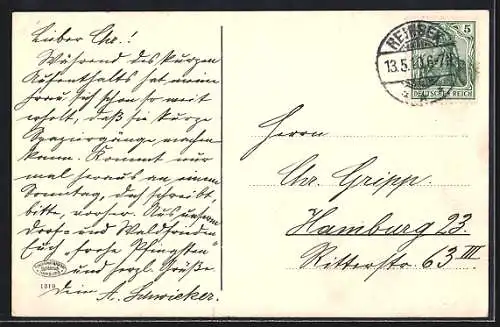 Lieber Chr.!
Während des kurzen
Aufenthalts hat mein
Frau sich schon so weit
erholt, daß sie kurze
Spaziergänge machen
kann. Kommt nur
mal heraus an einem
Sonntag, doch schreibt,
bitte, vorher. Aus unserm
Dorf- und Waldfrieden
Euch "frohe Pfingsten"
und herzl. Grüße.
Dein A. Schwieker.
1319
REINBEK
13.5.10.6-7N.
5
DEUTSCHES REICH
Herrn
Chr. Gripp.
Hamburg 23.
Ritterstr. 63 III